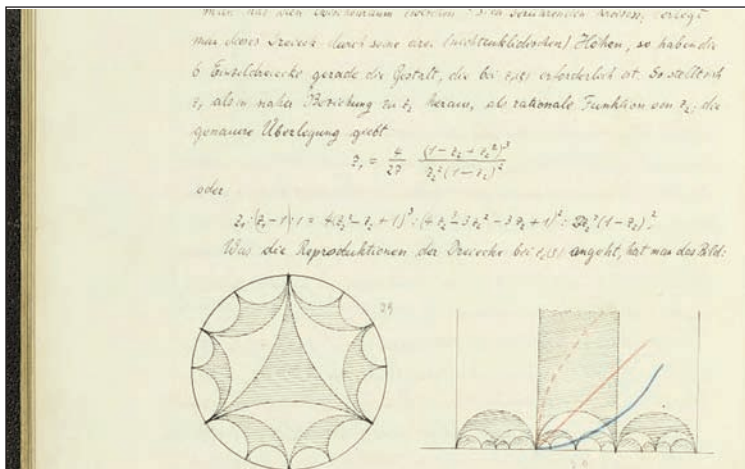 man das den Zwischenraum zwischen sich berührenden Kreisen; zerlegt
man dieses Dreieck durch seine drei (nichteuklidischen) Höhen, so haben die
6 Einzeldreiecke gerade die Gestalt, die bei z₁(s) erforderlich ist. So stellt sich
z₁ als in naher Beziehung zu z₂ heraus, als rationale Funktion von z₂; die
genauere Überlegung giebt
z₁ = 4/27 (1 - z₂ + z₂²)³ / z₂²(1 - z₂)²
oder
z₁ : (z₁ - 1) : 1 = 4(z₂² - z₂ + 1)³ : (4z₂³ - 3z₂² - 3z₂ + 1)² : z₂²(1 - z₂)²
Was die Reproduktionen der Dreiecke bei z₂(s) angeht, hat man das Bild: